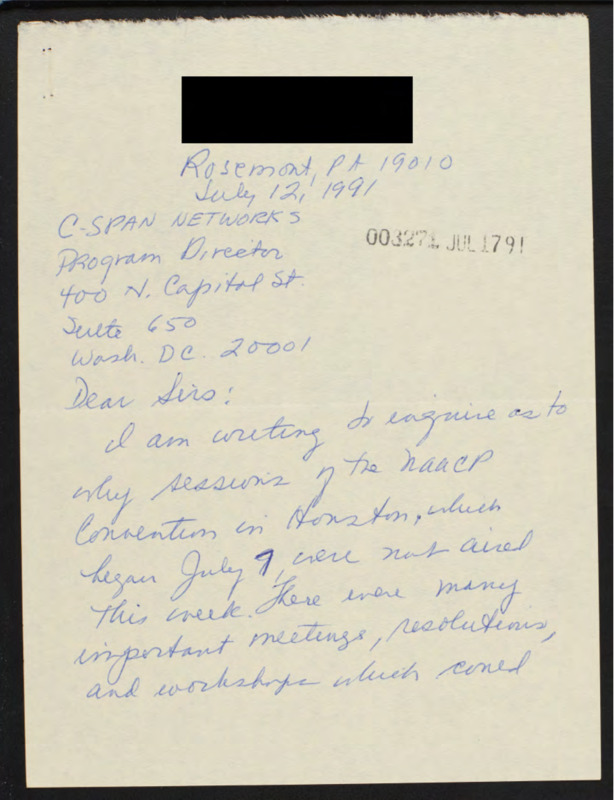 Rosemont, PA 19010
July 12, 1991
C-SPAN NETWORKS
Program Director
400 N. Capitol St.
Suite 650
Wash. DC. 20001
003271 JUL 17 91
Dear Sirs:
I am writing to enquire as to
why sessions of the NAACP
Convention in Houston, which
began July 7, were not aired
this week. There were many
important meetings, resolutions,
and workshops which coned